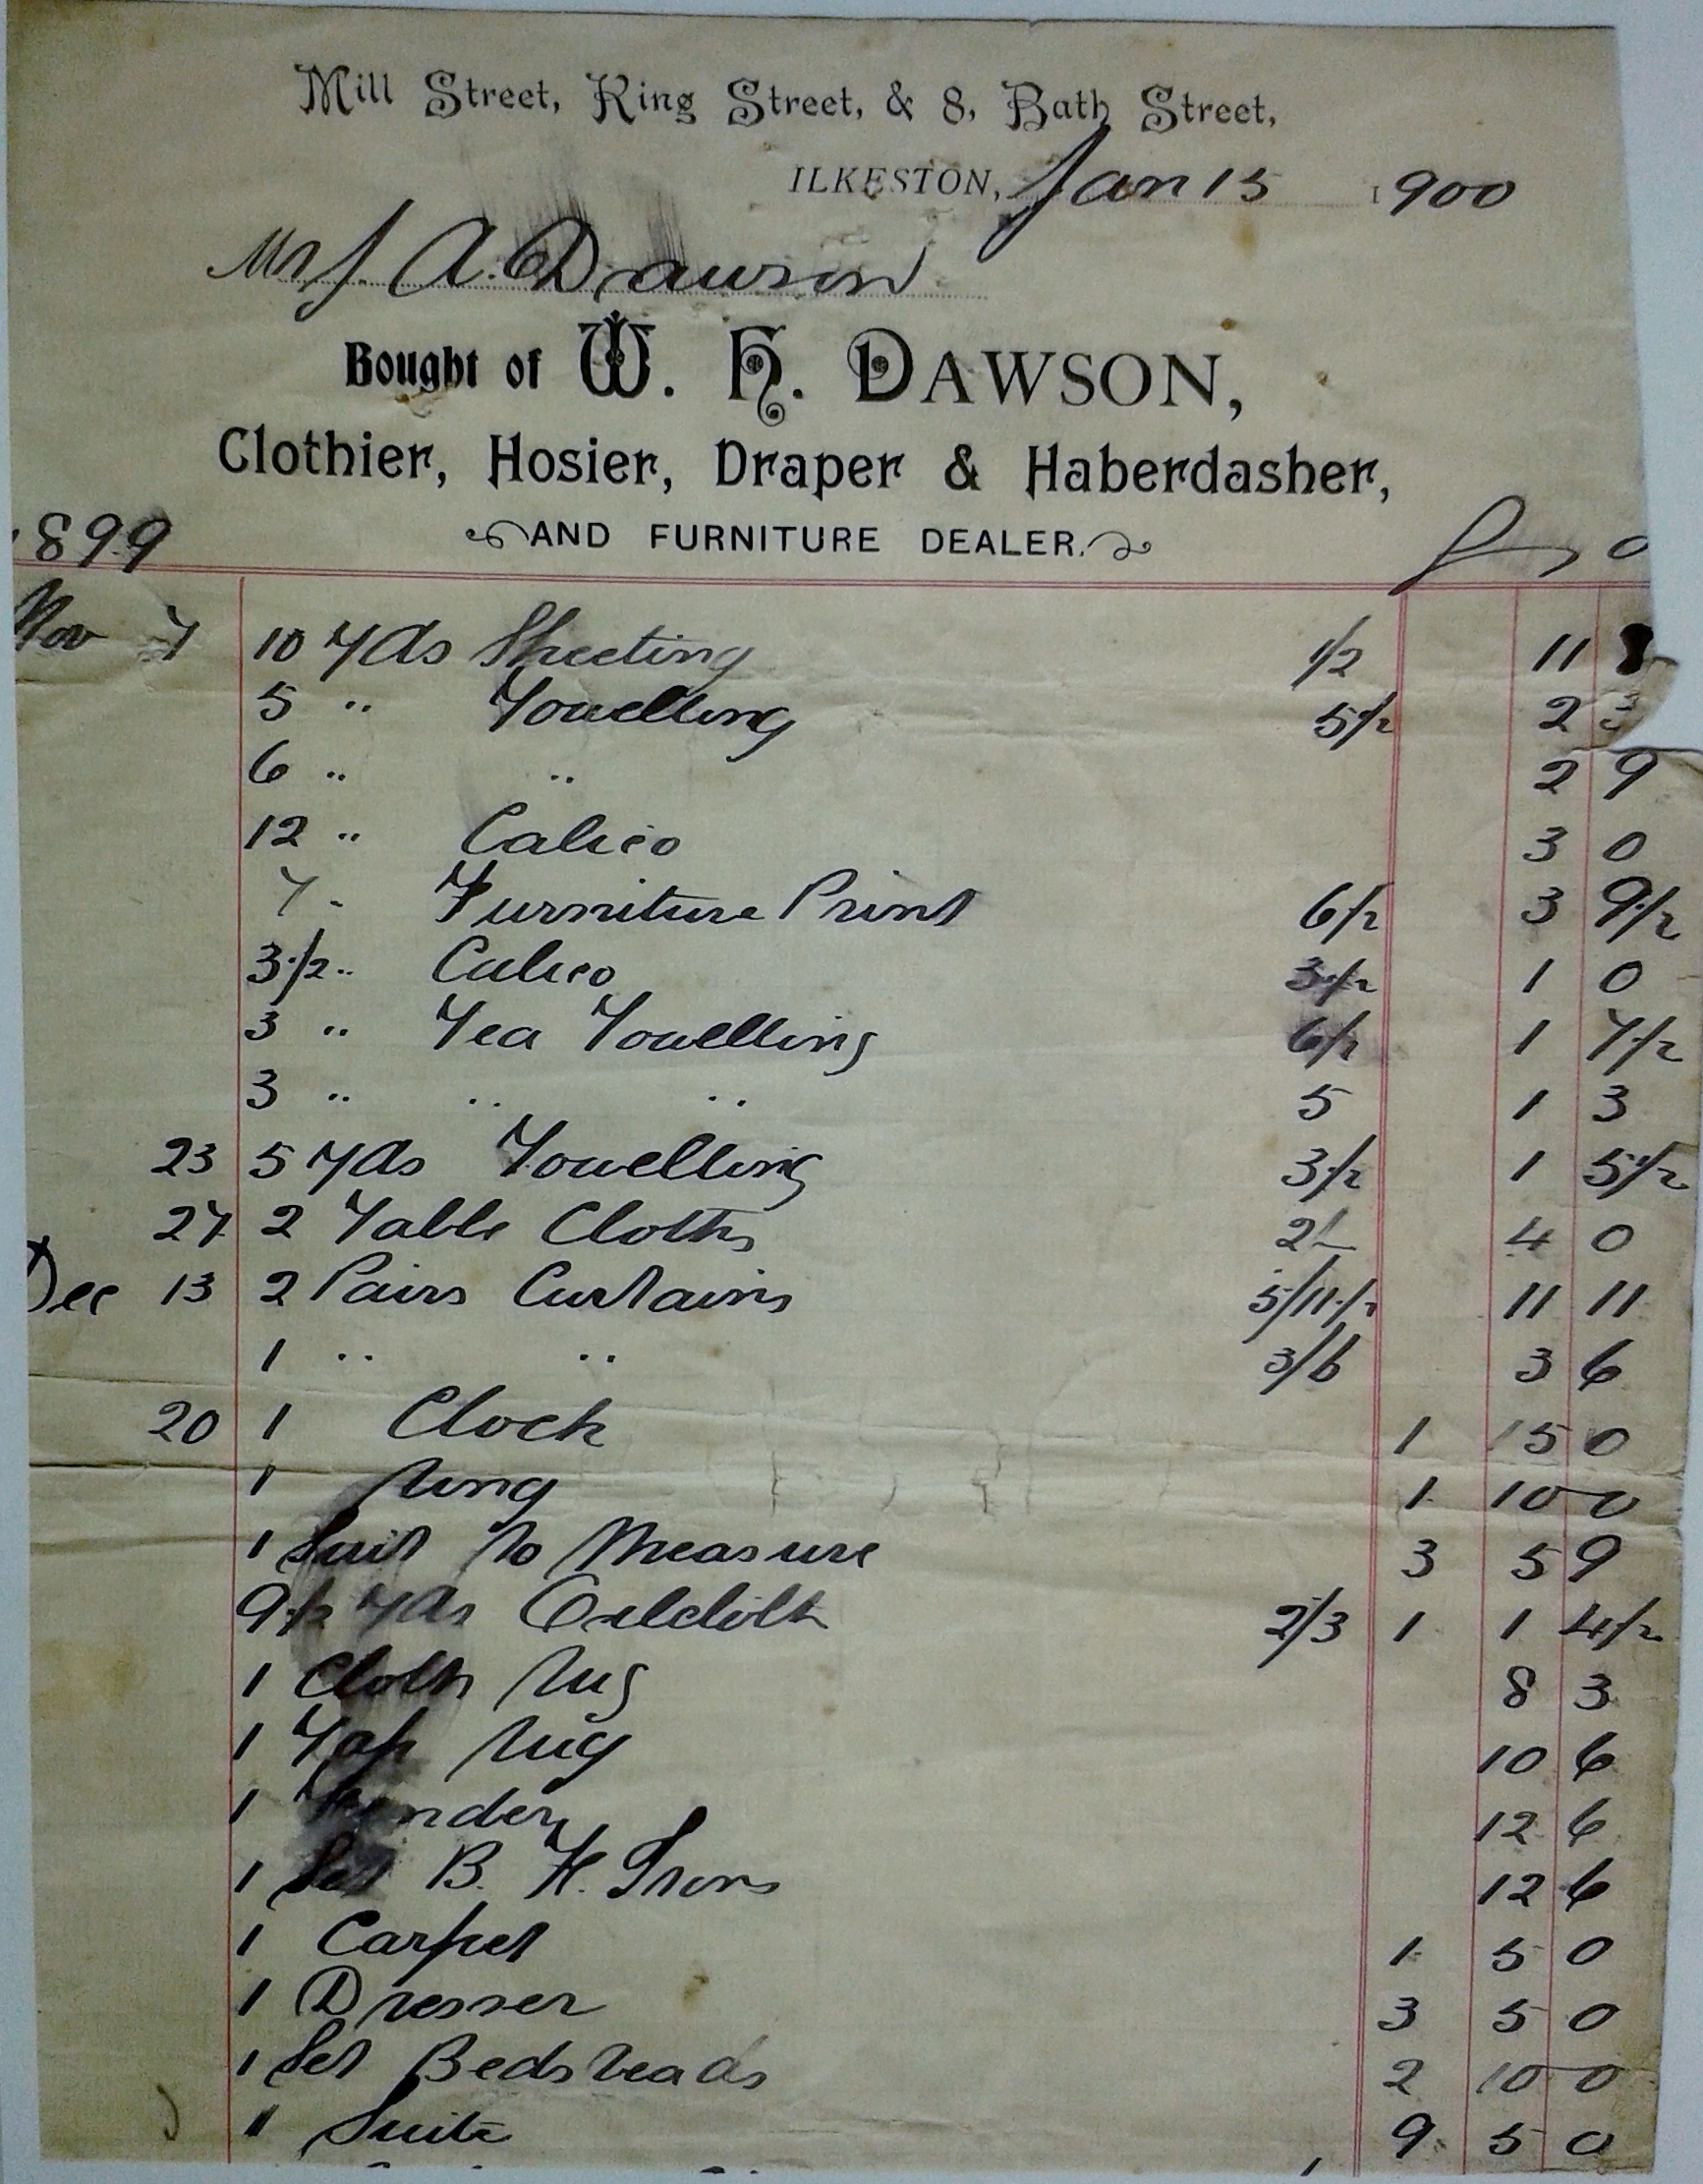 Mill Street, King Street, & 8, Bath Street,
ILKESTON, Jan 15 1900
A. Dawson
Bought of W. H. DAWSON,
Clothier, Hosier, Draper & Haberdasher,
1899 AND FURNITURE DEALER.
Nov 7 10 yds Sheeting 1/2 11 8
5 " Towelling 5 1/2 2 3
6 " " 2 9
12 " Calico 3 0
7 " Furniture Print 6 1/2 3 9 1/2
3 1/2 " Calico 3 1/2 1 0
3 " Tea Towelling 6 1/2 1 7 1/2
3 " " " 5 1 3
23 5 yds Towelling 3 1/2 1 5 1/2
27 2 Table Cloths 2/- 4 0
Dec 13 2 Pairs Curtains 5/11 1/2 11 11
1 " " 3/6 3 6
20 1 Clock 1 15 0
1 1 10 0
1 Suit to Measure 3 5 9
9 1/2 yds Oilcloth 2/3 1 1 4 1/2
1 Cloth Rug 8 3
1 Tap Rug 10 6
1 Fender 12 6
1 Set B. H. Irons 12 6
1 Carpet 1 5 0
1 Dresser 3 5 0
1 Set Bedsteads 2 10 0
1 Suite 9 5 0